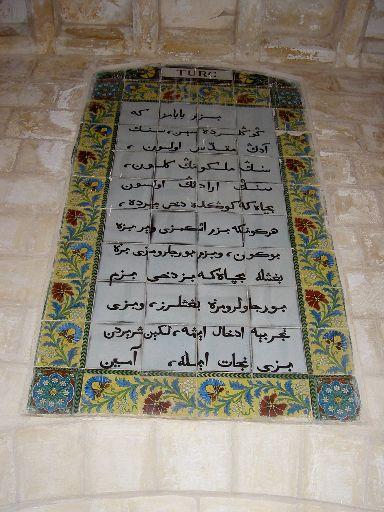 TURC
بزم بابامز كه
كوكلرده سین، سنڭ
آدڭ مقدّس اولسون،
سنڭ ملكوتڭ كلسون،
سنڭ ارادڭ اولسون
نیجه كه كوكده دخی یرده،
هركونكه بزم اتمكمزی ویر بزه
بوكون، وبزم بورجلرومزی بزه
بغشله نیجه كه بز دخی بزم
بورجلولرومزه بغشلرز، وبزی
تجربه یه ادخال ایتمه، لكین شریردن
بزی نجات ایله، آمین